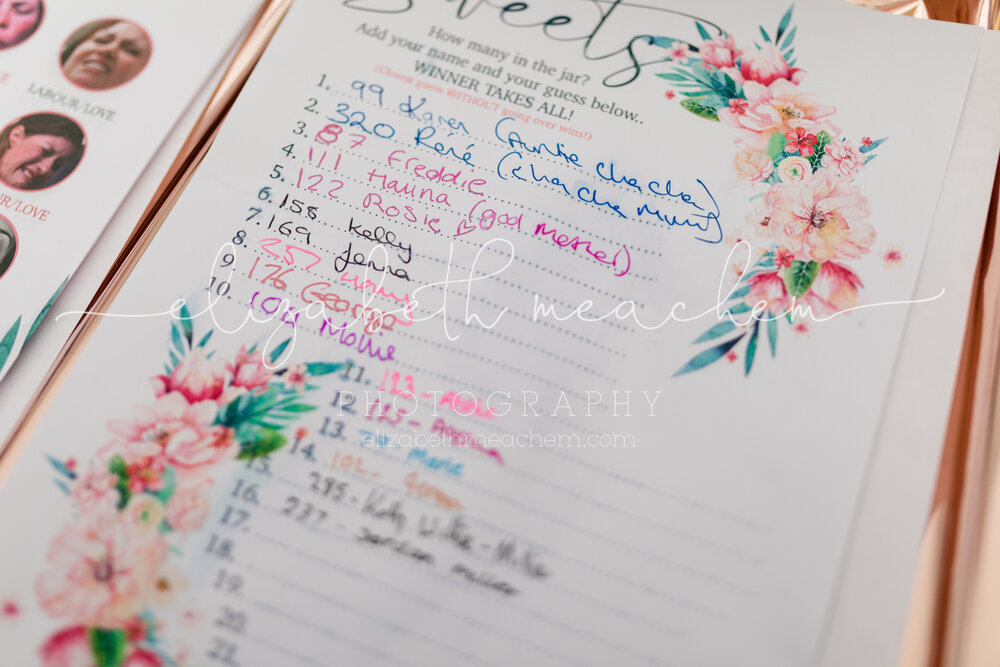 Sweets
How many in the jar?
Add your name and your guess below..
WINNER TAKES ALL!
(Closest guess WITHOUT going over wins!)
1. 99 Karen (Auntie chacha)
2. 320 René (chacha mum)
3. 87 Freddie
4. 111 Hanna (god mother)
5. 122 Rosie
6. 158 Kelly
7. 169 Jenna
8. 257
9. 176 George
10. 104 Mollie
11. 193 -
12. 115 -
13. Marie
14. 102 -
15. 285 - Katy
16. 237 -
17.
18.
19.
20.
21.
LABOUR/LOVE
UR/LOVE
elizabeth meachem
PHOTOGRAPHY
elizabethmeachem.com